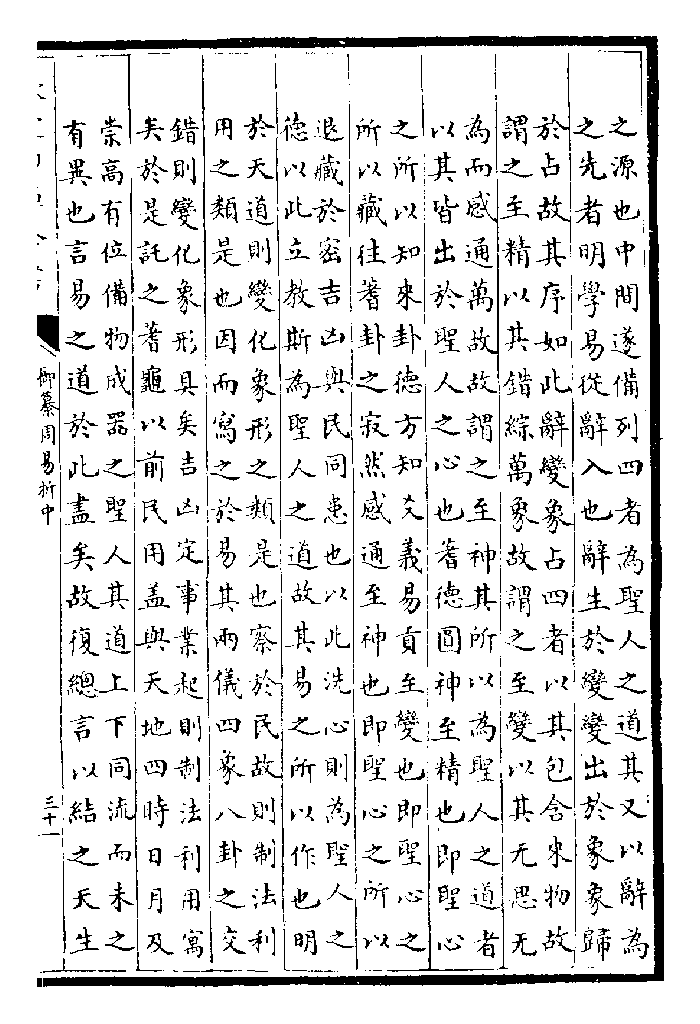 之源也中間遂備列四者為聖人之道其又以辭為
之先者明學易從辭入也辭生於變變出於象象歸
於占故其序如此辭變象占四者以其包含來物故
謂之至精以其錯綜萬象故謂之至變以其无思无
為而感通萬故故謂之至神其所以為聖人之道者
以其皆出於聖人之心也蓍德圓神至精也即聖心
之所以知來卦德方知爻義易貢至變也即聖心之
所以藏往蓍卦之寂然感通至神也即聖心之所以
退藏於密吉凶與民同患也以此洗心則為聖人之
德以此立教斯為聖人之道故其易之所以作也明
於天道則變化象形之類是也察於民故則制法利
用之類是也因而寫之於易其兩儀四象八卦之交
錯則變化象形具矣吉凶定事業起則制法利用寓
矣於是託之蓍龜以前民用盖與天地四時日月及
崇高有位備物成器之聖人其道上下同流而未之
有異也言易之道於此盡矣故復總言以結之天生
御纂周易折中
三十一